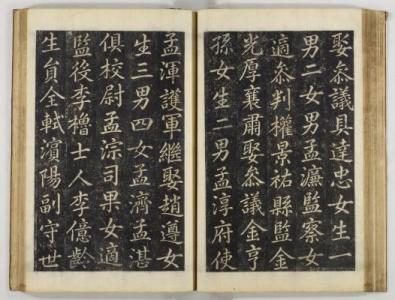 娶叅議具達忠女生一
男二女男孟濂監察女
適叅判權景祐縣監金
光厚襄肅娶叅議金亨
孫女生二男孟淳府使
孟渾護軍繼娶趙遵女
生三男四女孟濟孟湛
俱校尉孟淙司果女適
監役李櫓士人李億齡
生員全軾濱陽副守世